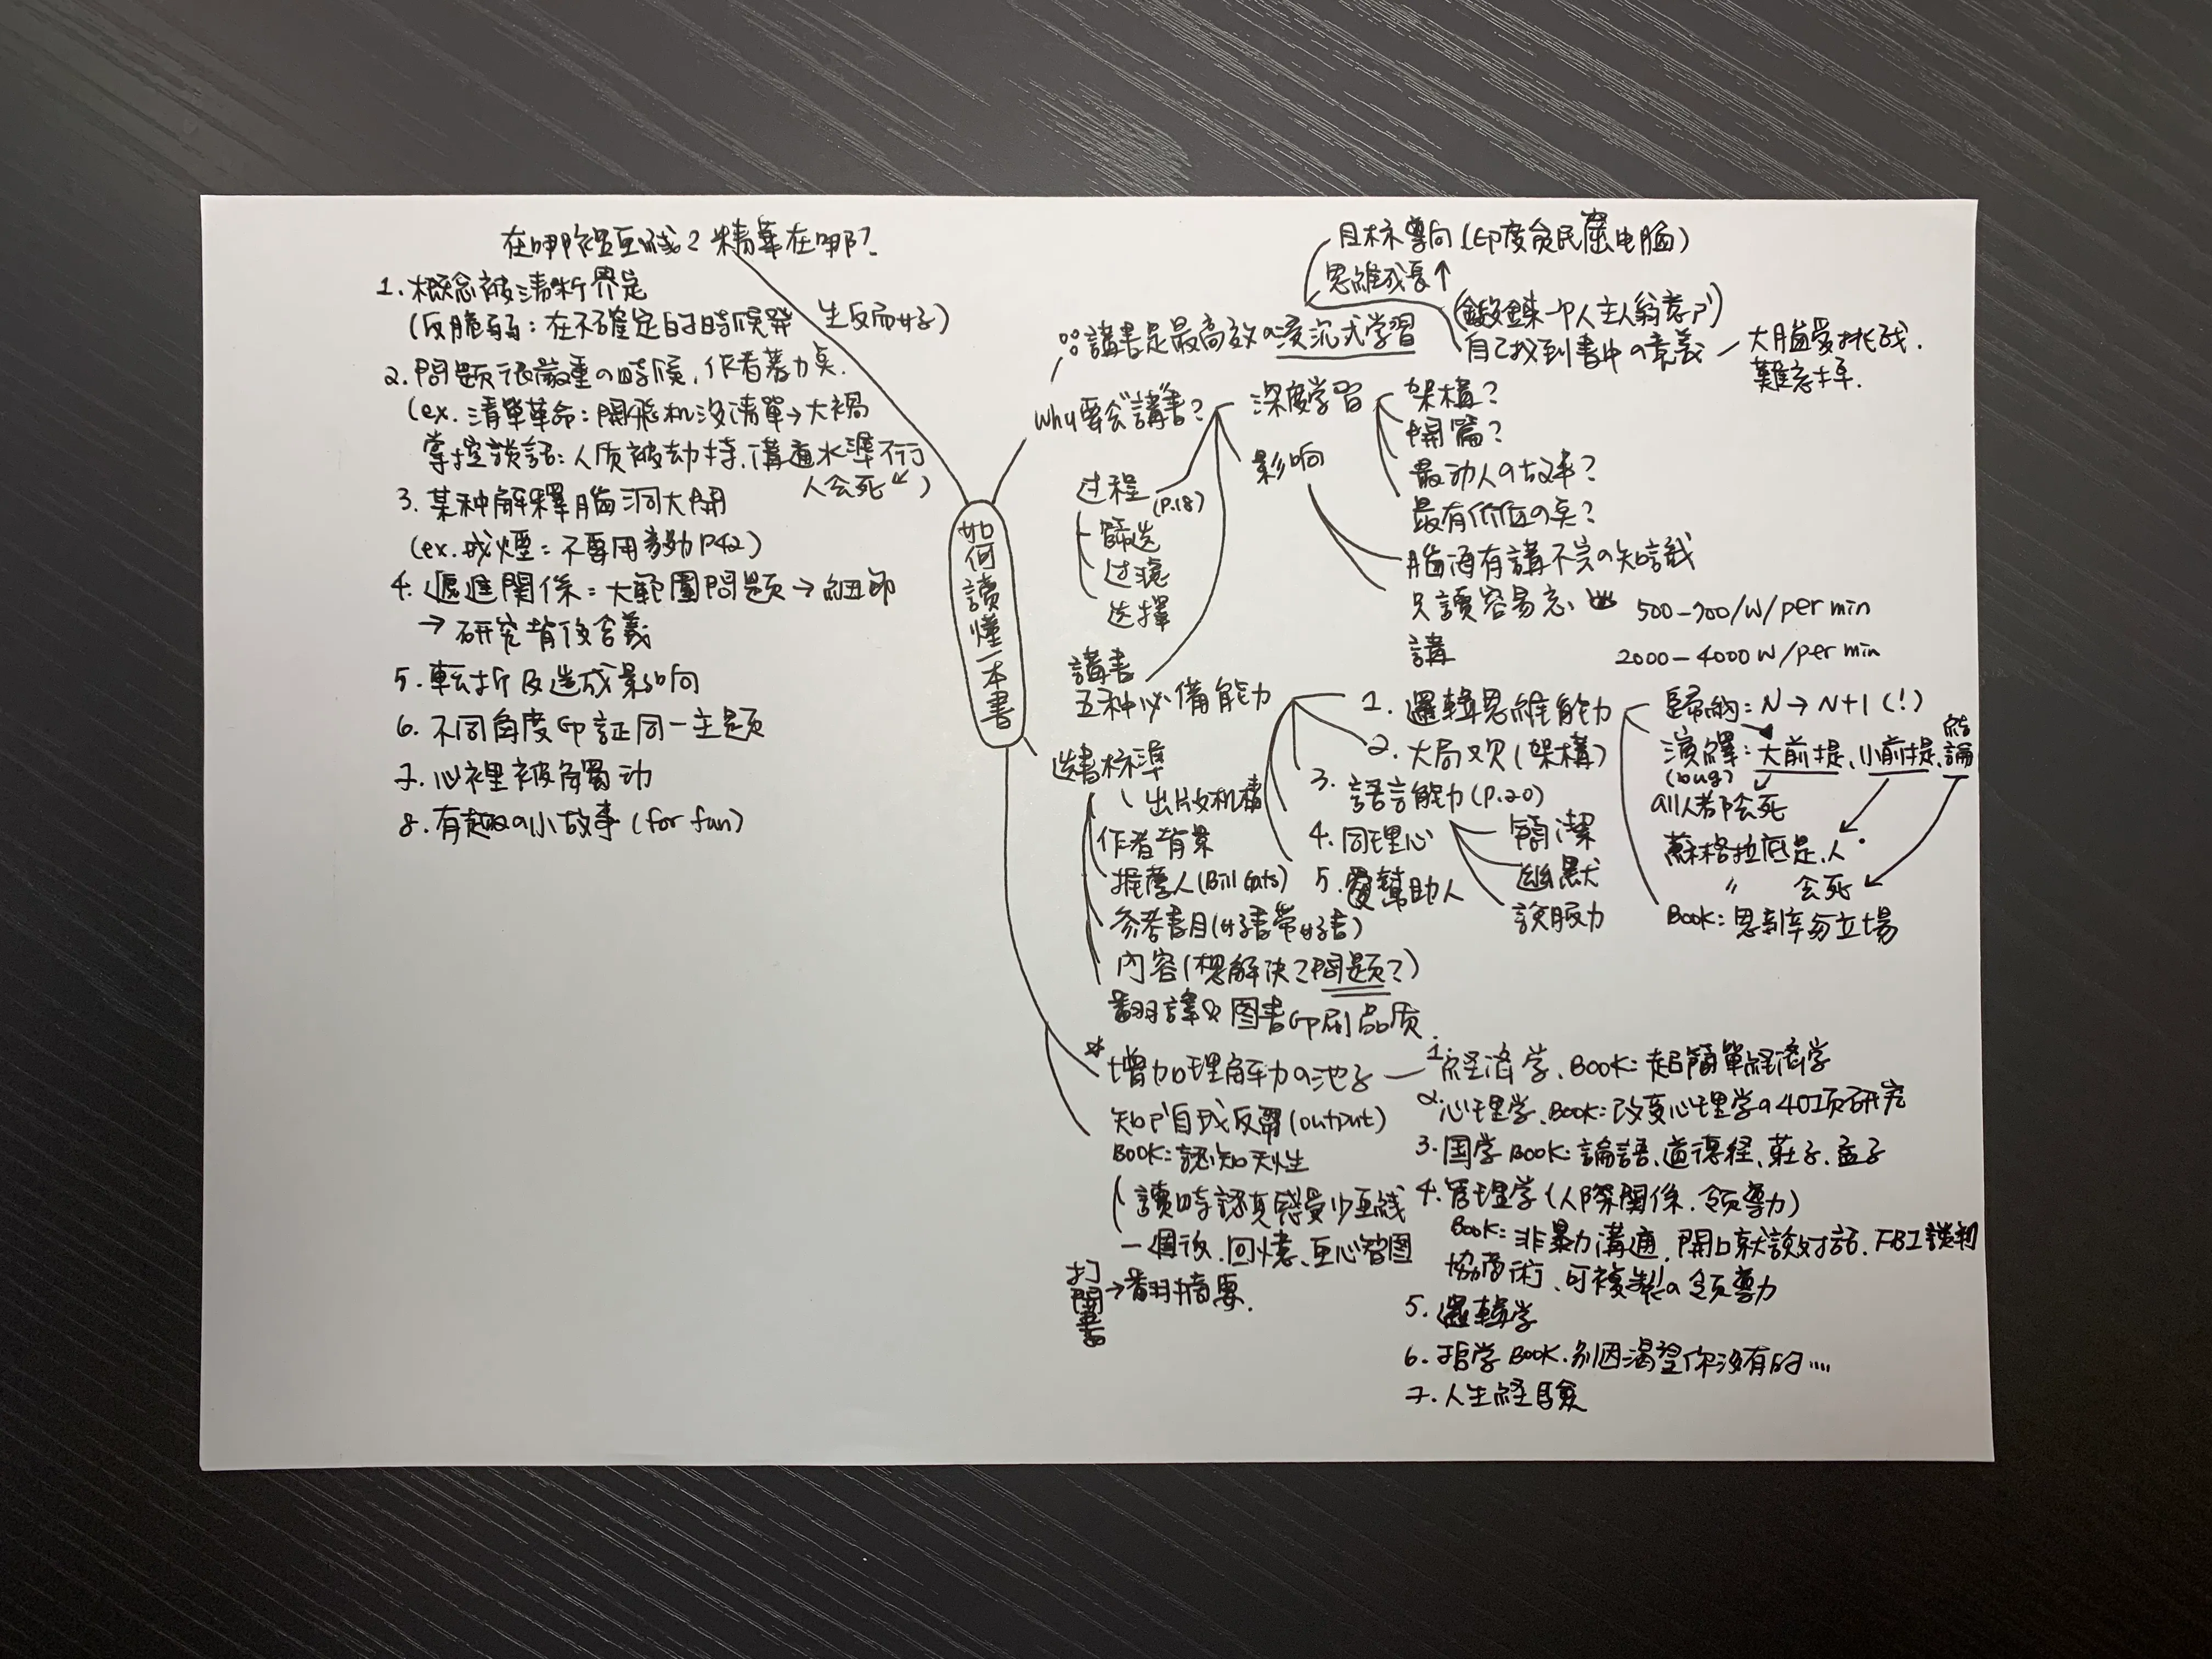 在哪裡画線？精華在哪？
1. 概念被清晰界定
(反脆弱：在不確定的時候発生反而好)
2. 問題很嚴重の時候, 作者著力点.
(ex. 清單革命：開飛机没清單→大禍
掌控談話：人质被劫持, 溝通水準不行
人会死)
3. 某种解釋腦洞大開
(ex. 戒煙：不要用 P42)
4. 遞進關係：大範圍問題→細節
→研究背後含義
5. 転折及造成影响
6. 不同角度印証同一主題
7. 心裡被觸动
8. 有趣の小故事 (for fun)
如何讀懂一本書
目标導向 (印度貧民窟电脑)
思維成長↑
(鍛錬一个人主人翁意识)
∵講書是最高效の浸沉式学習
自己找到書中の意義 — 大腦愛挑战.
難忘掉.
Why要会"講書"?
深度学習
架構？
開篇？
最动人の故事？
最有价值の点？
影响
腦海有講不完の知識
只讀容易忘
500-700/W/per min
講
2000-4000 W/per min
过程
(P.18)
篩选
过濾
选擇
講書
五种必備能力
1. 邏輯思維能力
2. 大局观 (架構)
3. 語言能力 (P.20)
簡潔
幽默
說服力
4. 同理心
5. 愛幫助人
歸納：N→N+1 (!)
演繹：大前提、小前提、結論
(bug)
all人都会死
蘇格拉底是人.
〃 会死
Book: 思考勿立場
选書标準
出版机構
作者背景
推薦人 (Bill Gats)
参考書目 (好書帶好書)
内容 (想解決？問題？)
翻譯&图書印刷品质
*增加理解力の池子
1. 経済学、Book: 超簡單経済学
2. 心理学、Book: 改变心理学の40项研究
3. 国学 Book: 論語、道德経、莊子、孟子
4. 管理学 (人際關係、领導力)
Book: 非暴力溝通, 開口就說对話. FBI談判
協商術、可複製の领導力
5. 邏輯学
6. 哲学 Book. 别因渴望你没有的....
7. 人生経驗
知识自我反芻 (output)
Book: 認知天性
讀時認真感受少画线
一週後. 回憶、画心智图
打開書→翻摘要.